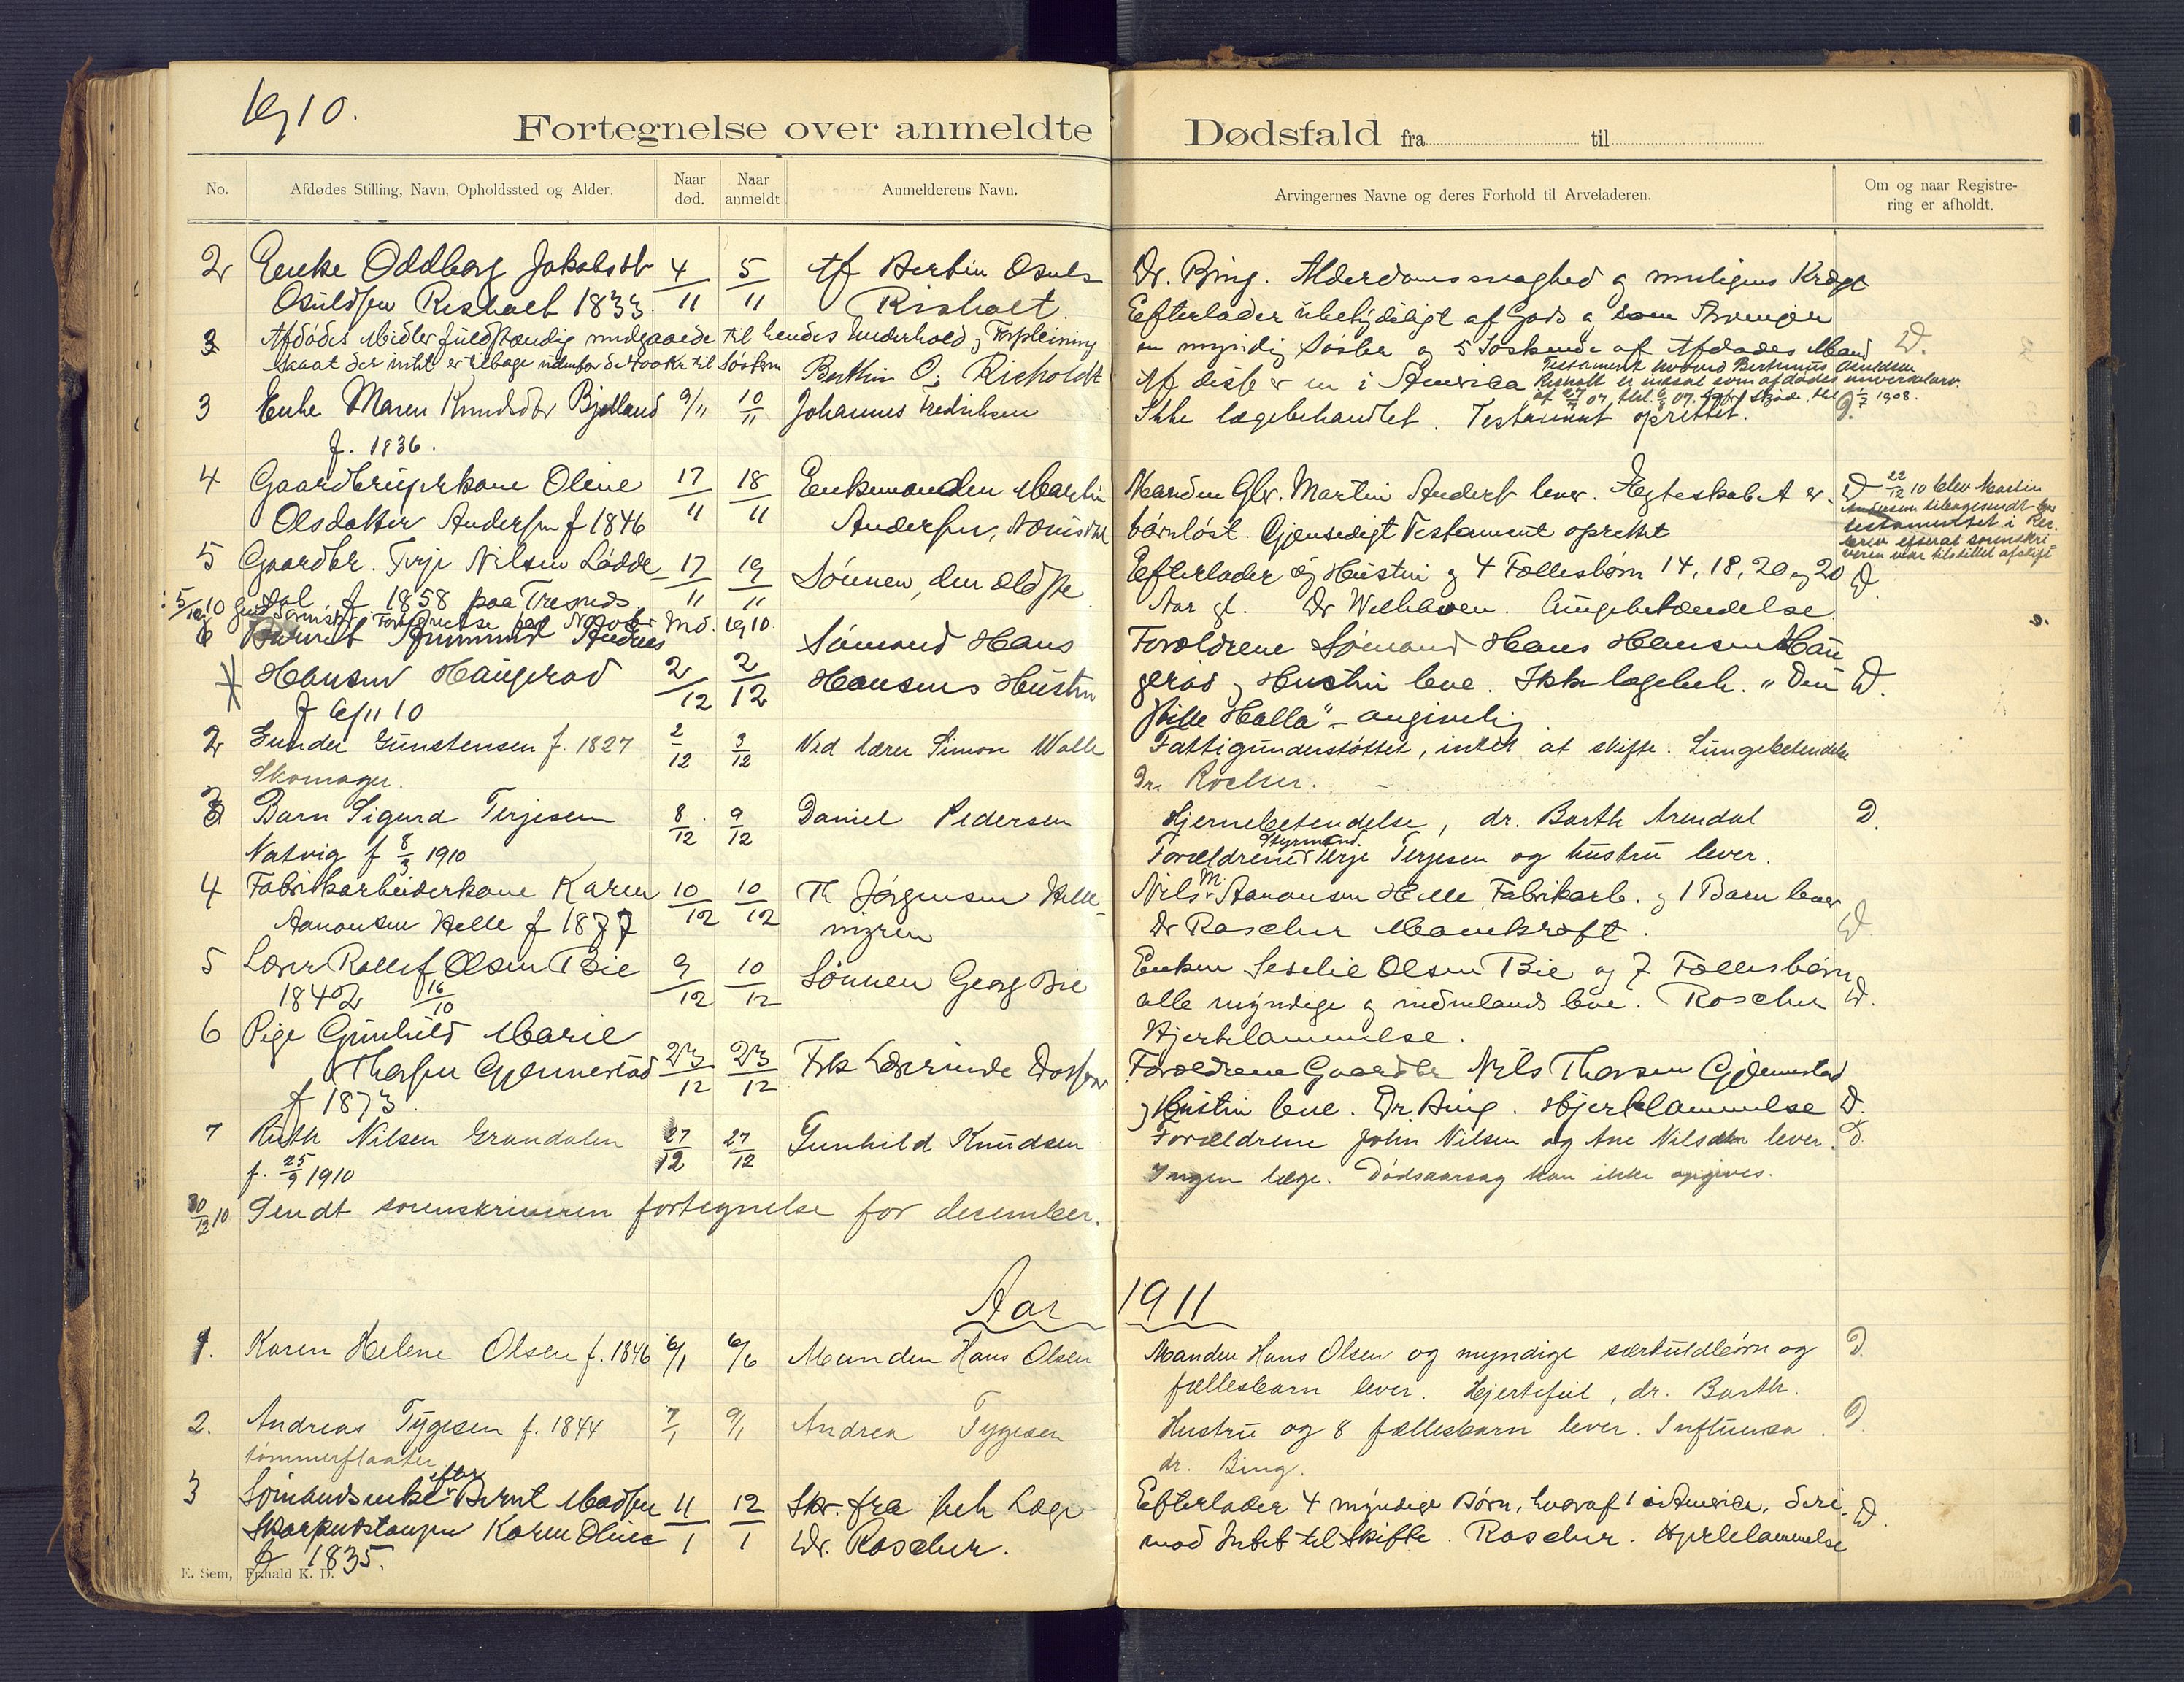 1910.
Fortegnelse over anmeldte Dødsfald fra til
No.
Afdødes Stilling, Navn, Opholdssted og Alder.
Naar død.
Naar anmeldt
Anmelderens Navn.
Arvingernes Navne og deres Forhold til Arveladeren.
Om og naar Registrering er afholdt.
2 Enke Oddborg Jakobsdtr 4/11 5/11 Af Bertin Osuls
Osuldsen Risholt 1833 Risholt
Dr. Bing. Alderdomssvaghed og muligens Kræft
Efterlader ubetydeligt af Gods og som Arvinger
en myndig Søster og 5 Søskende af Afdødes Mand D.
3 Afdødes Midler fuldstændig medgaaede til hendes Underhold og Forpleining
saaat der intet er tilbage udenfor de 400 Kr til Søsteren Berthin O. Risholdt
Af disse er en i America
Testament hvorved Bertinius Osuldsen
Risholt er indsat som afdødes universalarv.
3 Enke Maren Knudsdtr Bjelland 9/11 10/11 Johannes Fredriksen
f. 1836.
Ikke lægebehandlet. Testament oprettet. D.
4 Gaardbrugerkone Oline 17/11 18/11 Enkemanden Martin
Olsdatter Andersen f 1846 Andersen,
Manden Gbr. Martin Anders lever. Ægteskabet er
barnløst. Gjensidigt Testament oprettet
D 22/12 10 blev Martin
Andersen tilbagesendt
testamentet i Rec.
brev efterat sorenskri
veren var tilstillet afskrift
5 Gaardbr. Terje Nilsen Lødde 17/11 19/11 Sønnen, den ældste
dal f 1858 paa
Efterlader sig Hustru og 4 Fællesbørn 14, 18, 20 og 20 D
Aar gl. Dr Welhaven. Lungebetændelse
5/12 10 send Sorenskr. Fortegnelse for Novbr Md. 1910.
6 Barnet Andreas Sømand Hans
Hansen Haugerod 2/12 2/12 Hansens Hustru
f 6/11 10
Forældrene Sømand Hans Hansen Hau
gerod og Hustru leve. Ikke lægebeh. "Den D.
stille Halla" - angivelig
2 Gunder Gunstensen f. 1827 2/12 3/12 Ved lærer Simon Walle
Skomager.
Fattigunderstøttet, intet at skifte. Lungebetendelse
Dr. Roscher.
3 Barn Sigurd Terjesen 8/12 9/12 Daniel Pedersen
Natvig f 8/3 1910
Hjernebetendelse, dr. Barth Arendal D.
Forældrene Styrmand Terje Terjesen og hustru lever.
4 Fabrikarbeiderkone Karen 10/12 10/12 Th Jørgensen Helle-
Aanonsen Helle f 1877 myren
Nils M. Aanonsen Helle Fabrikarb. og 1 Barn lever
Dr Roscher Mavekræft. D.
5 Lærer Rollef Olsen Bie 9/12 10/12 Sønnen Georg Bie
1842 16/10
Enken Leselie Olsen Bie og 7 Fællesbørn
alle myndige og indenlands leve. Roscher D.
Hjertelammelse.
6 Pige Gunhild Marie
Thorsen Gjennestad 23/12 23/12 Frk Lærerinde
f 1873
Forældrene Gaardbr Nils Thorsen Gjennestad
og Hustru leve. Dr Bing. Hjertelammelse D.
7 Ruth Nilsen Grandalen 27/12 27/12 Gunhild Knudsen
f. 25/9 1910
Forældrene John Nilsen og Ane Nilsdtr lever. D.
Ingen læge. Dødsaarsag kan ikke opgives.
30/12 10 Sendt sorenskriveren fortegnelse for december.
Aar 1911
1. Karen Helene Olsen f. 1846 6/1 6/6 Manden Hans Olsen
Manden Hans Olsen og myndige særkuldbørn og D.
fællesbarn lever. Hjertefeil, dr. Barth.
2. Andreas Tygesen f. 1844 7/1 9/1 Andrea Tygesen
tømmerfløater
Hustru og 8 fællesbarn lever. Influensa. D.
dr. Bing.
3 Sømandsenke efter Bernt Madsen 11/1 12/1 Skr. fra beh Læge
Karen Oline Dr. Roscher.
f 1835.
Efterlader 4 myndige Børn, hvoraf 1 i America. Deri- D.
mod Intet til Skifte. Roscher. Hjertelammelse
E. Sem, Frhald K. D.